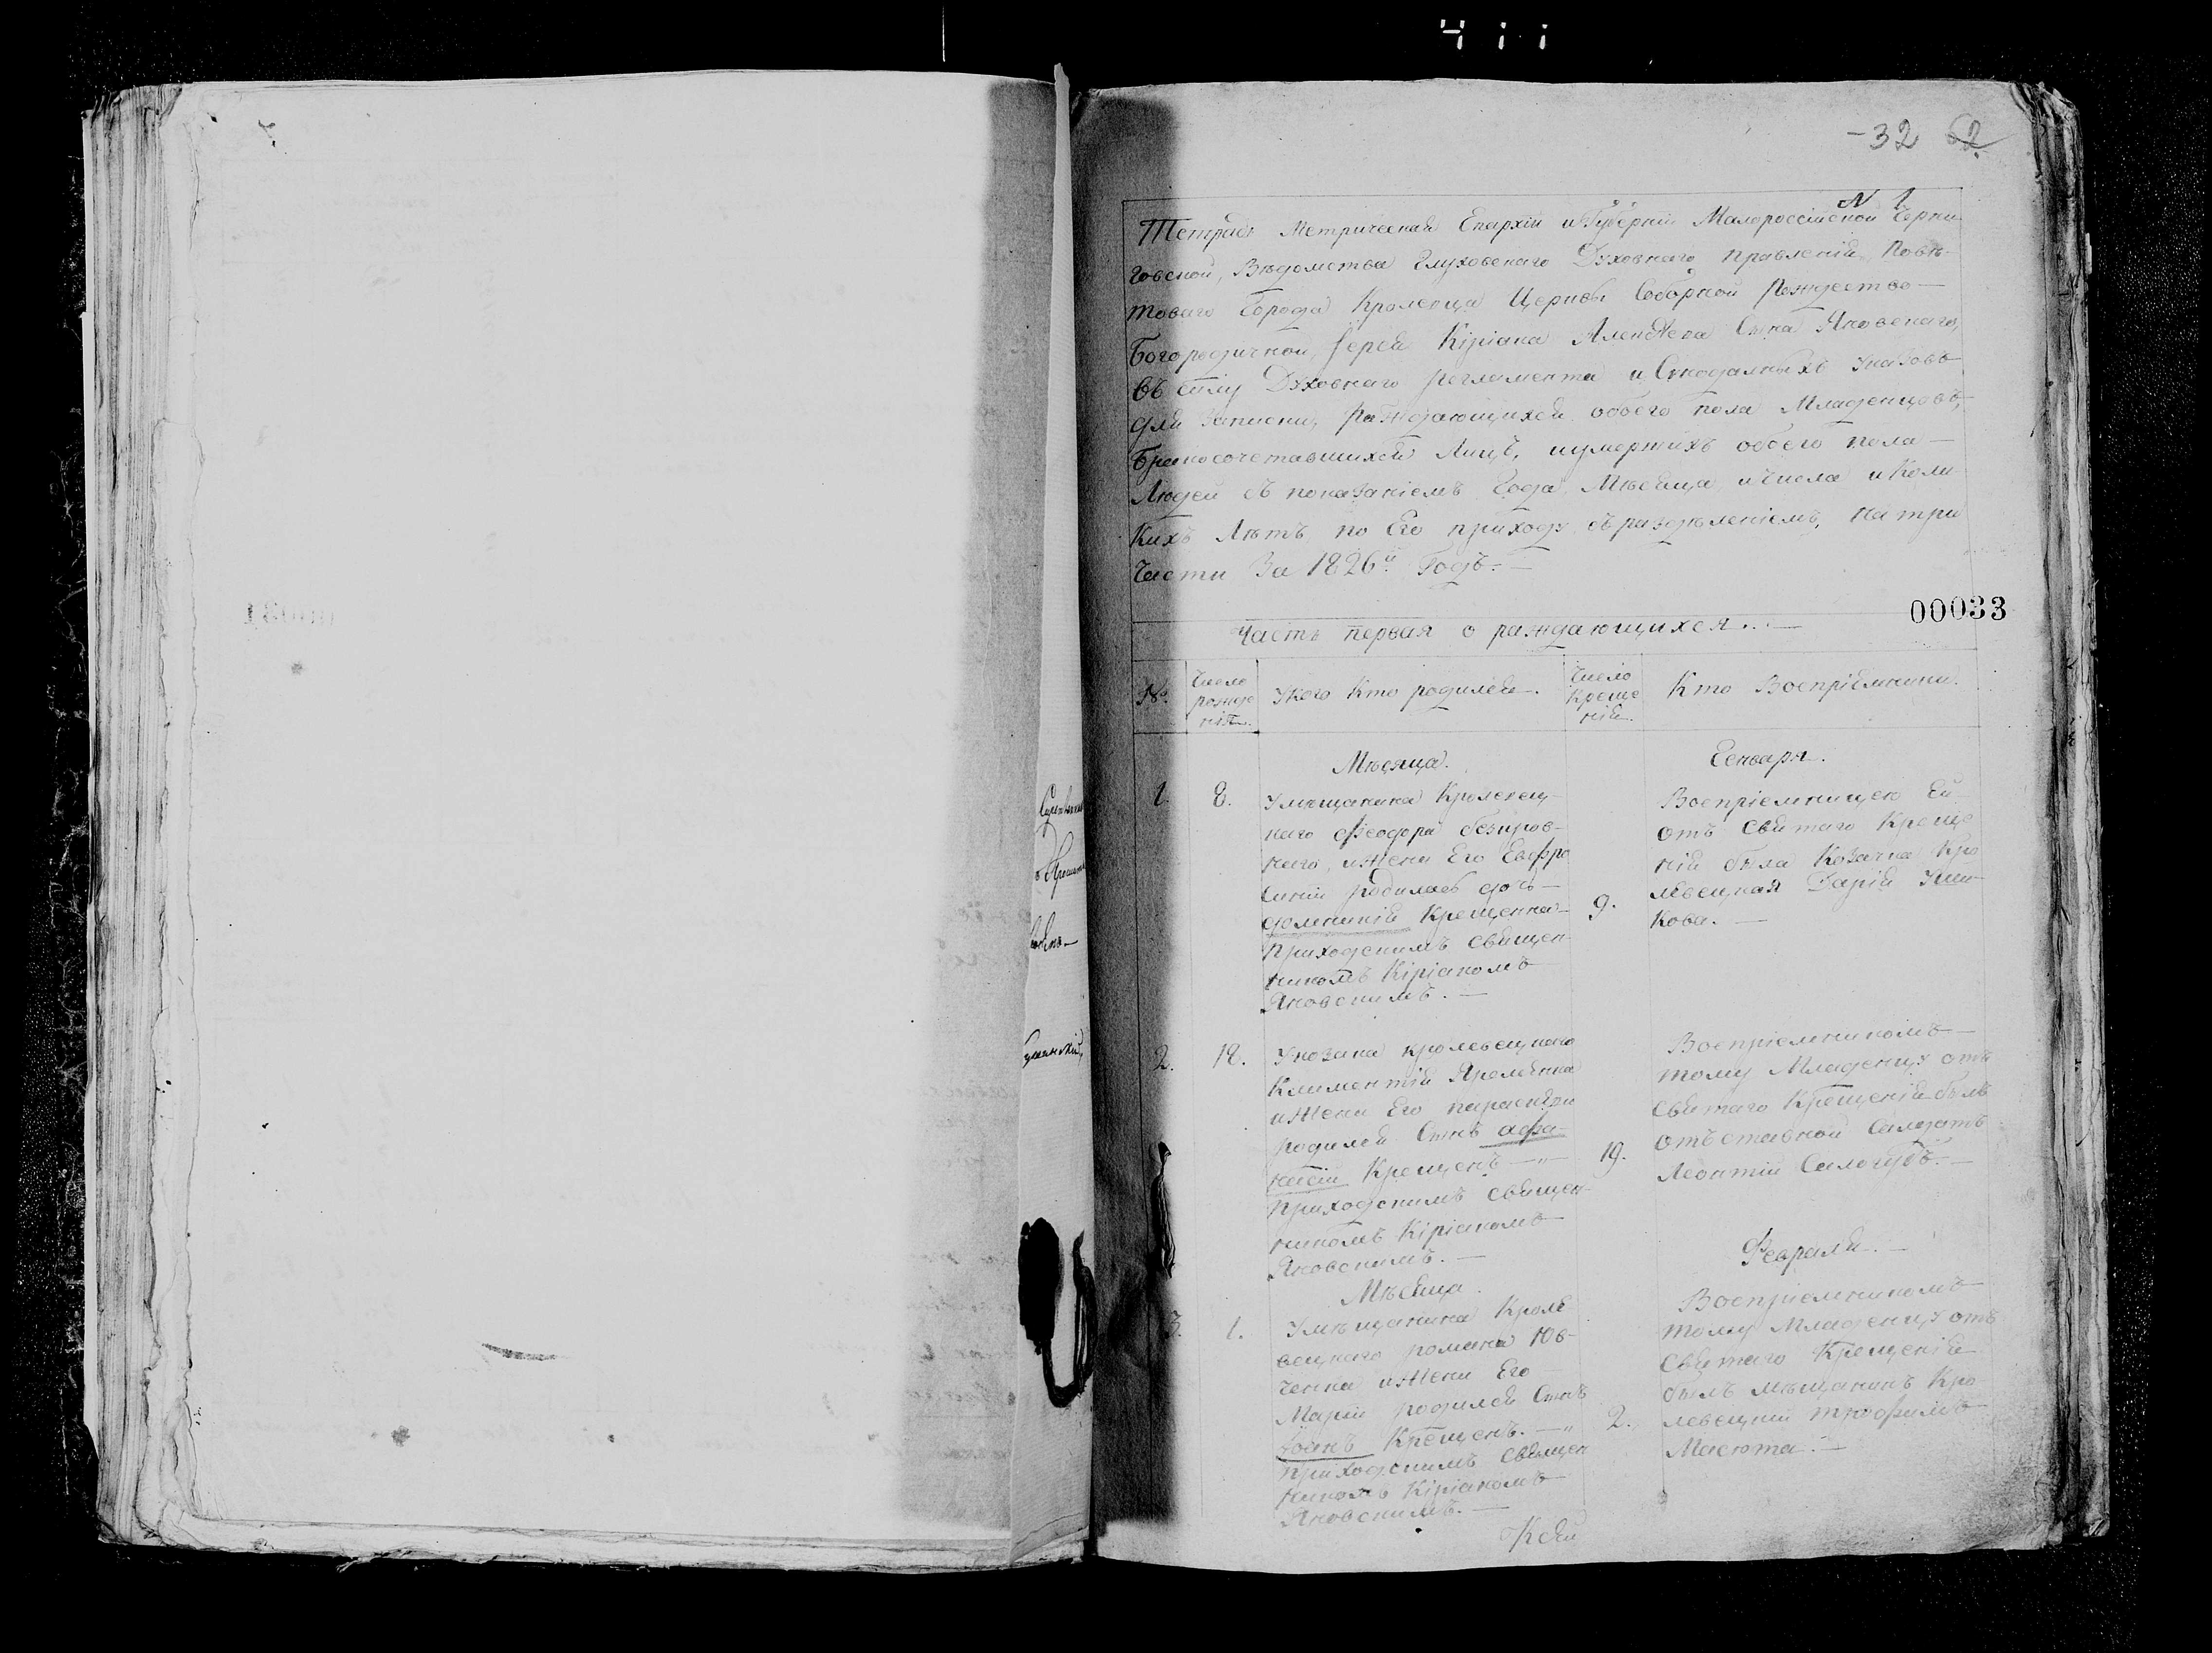 411
-32 62
N 1
Тетрадь Метрическая Епархіи и Губерніи Малороссійской Черни
говской, Вѣдомства Глуховскаго Духовнаго правленія Повѣ-
товаго Города Кролевца Церкви Соборной Рождество-
Богородичной, Іерея Кіріака Алексѣева Сына Яновскаго,
въ силу Духовнаго регламента и Сѵнодалныхъ Указовъ
для Записки, Раждающихся обоего пола Младенцовъ,
бракосочетавшихся Лицъ, и умершихъ обоего пола
Людей съ показаніемъ Года Мѣсяца и Числа и Коли
кихъ Лѣтъ по Его приходу съ раздѣленіемъ, на три
Части За 1826й Годъ.
00033
Часть первая о раждающихся.
№. Число рожде нія. У Кого Кто родился. Число Креще нія. Кто Воспріемники.
Мѣсяца. Генваря.
1. 8. У мѣщанина Кролевец-
каго Феодора
каго, и жены Его Евфро
синіи родилась дочь
домникія Крещенна
Приходскимъ Священ
никомъ Кіріакомъ
Яновскимъ.
9.
Воспріемницею Ей
отъ Святаго Креще
нія была Козачка Кро
левецкая Дарія
кова.
2. 18. У козака кролевецкаго
Климентія
и жены Его параскевы
родился Сынъ афа-
насій Крещенъ
Приходскимъ Священ
никомъ Кіріакомъ
Яновскимъ.
19.
Воспріемникомъ
тому Младенцу отъ
Святаго Крещенія былъ
отъставной Салдатъ
Леонтій Салогубъ.
Мѣсяца Февраля.
3. 1. У мѣщанина Кроле
вецкаго романа Юв-
ченка и жены Его
Маріи родился Сынъ
Іоанъ Крещенъ.
Приходскимъ Священ
никомъ Кіріакомъ
Яновскимъ.
2.
Воспріемникомъ
тому Младенцу отъ
Святаго Крещенія
былъ мѣщанинъ Кро
левецкій трофимъ
Масюта.